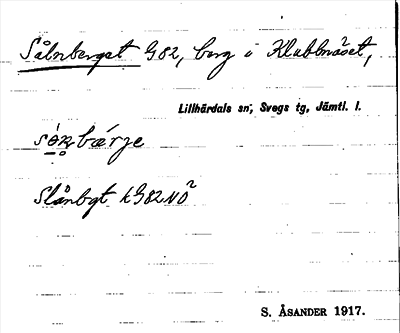 Sålnberget G82, berg i Klubbnäset,
Lillhärdals sn, Svegs tg, Jämtl. l.
Slånbgt kG82NO²
S. ÅSANDER 1917.